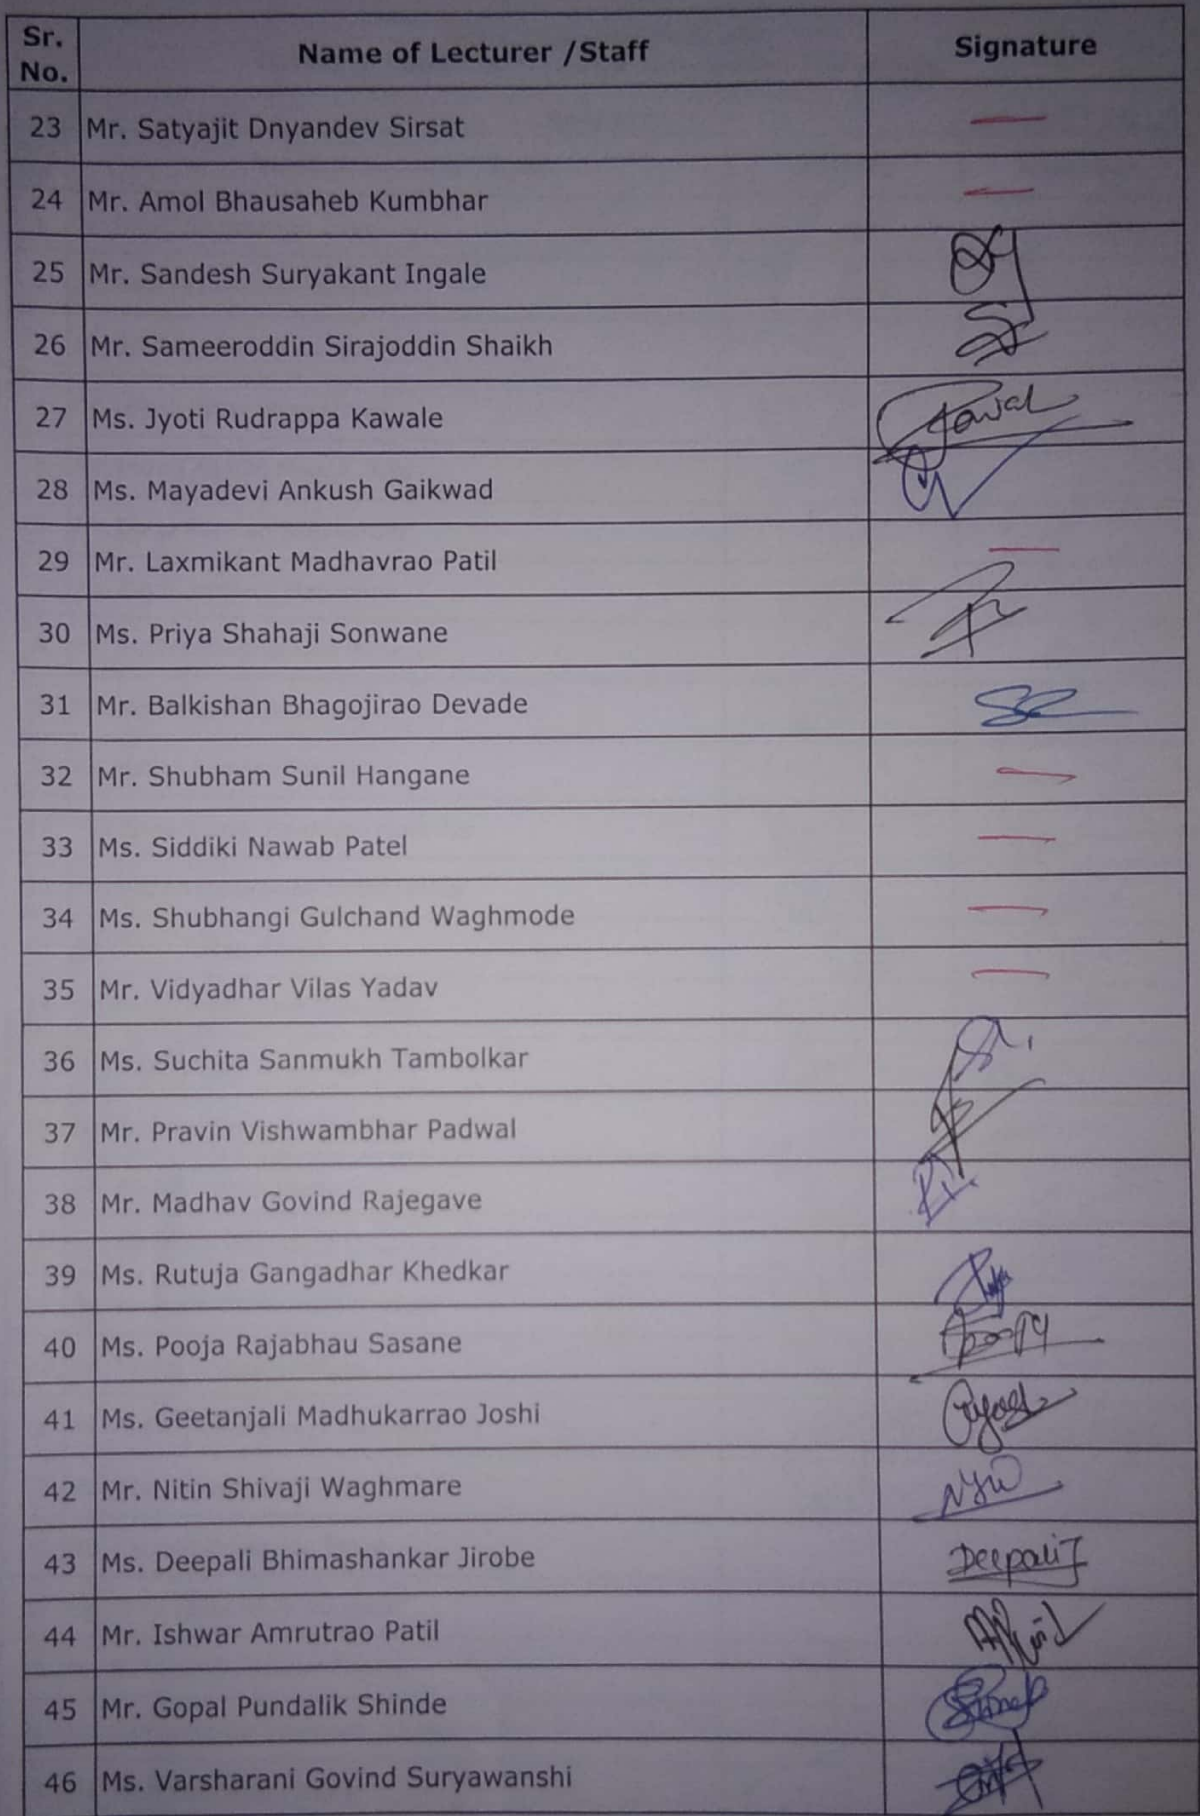 Sr. No. Name of Lecturer /Staff Signature
23 Mr. Satyajit Dnyandev Sirsat —
24 Mr. Amol Bhausaheb Kumbhar —
25 Mr. Sandesh Suryakant Ingale
26 Mr. Sameeroddin Sirajoddin Shaikh
27 Ms. Jyoti Rudrappa Kawale
28 Ms. Mayadevi Ankush Gaikwad
29 Mr. Laxmikant Madhavrao Patil —
30 Ms. Priya Shahaji Sonwane
31 Mr. Balkishan Bhagojirao Devade
32 Mr. Shubham Sunil Hangane —
33 Ms. Siddiki Nawab Patel —
34 Ms. Shubhangi Gulchand Waghmode —
35 Mr. Vidyadhar Vilas Yadav —
36 Ms. Suchita Sanmukh Tambolkar
37 Mr. Pravin Vishwambhar Padwal
38 Mr. Madhav Govind Rajegave
39 Ms. Rutuja Gangadhar Khedkar
40 Ms. Pooja Rajabhau Sasane
41 Ms. Geetanjali Madhukarrao Joshi
42 Mr. Nitin Shivaji Waghmare
43 Ms. Deepali Bhimashankar Jirobe Deepali J
44 Mr. Ishwar Amrutrao Patil
45 Mr. Gopal Pundalik Shinde
46 Ms. Varsharani Govind Suryawanshi